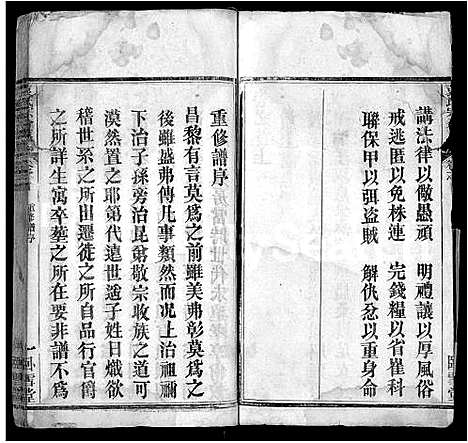 講法律以儆愚頑　明禮讓以厚風俗
戒逃匿以免株連　完錢糧以省崔科
聯保甲以弭盜賊　解仇忿以重身命
重修譜序
昌黎有言莫爲之前雖美弗彰莫爲之
後雖盛弗傳凡事類然而况上治祖禰
下治子孫旁治昆弟敬宗收族之道可
漠然置之耶第代遠世遙子姓日熾欲
稽世系之所由遷徙之所自品行官爵
之所詳生寓卒塟之所在要非譜不爲
重修譜序
一臥雪堂